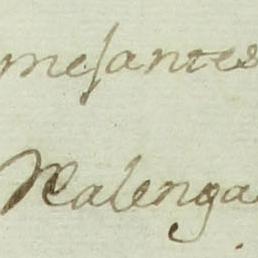 mesantes
Realenga